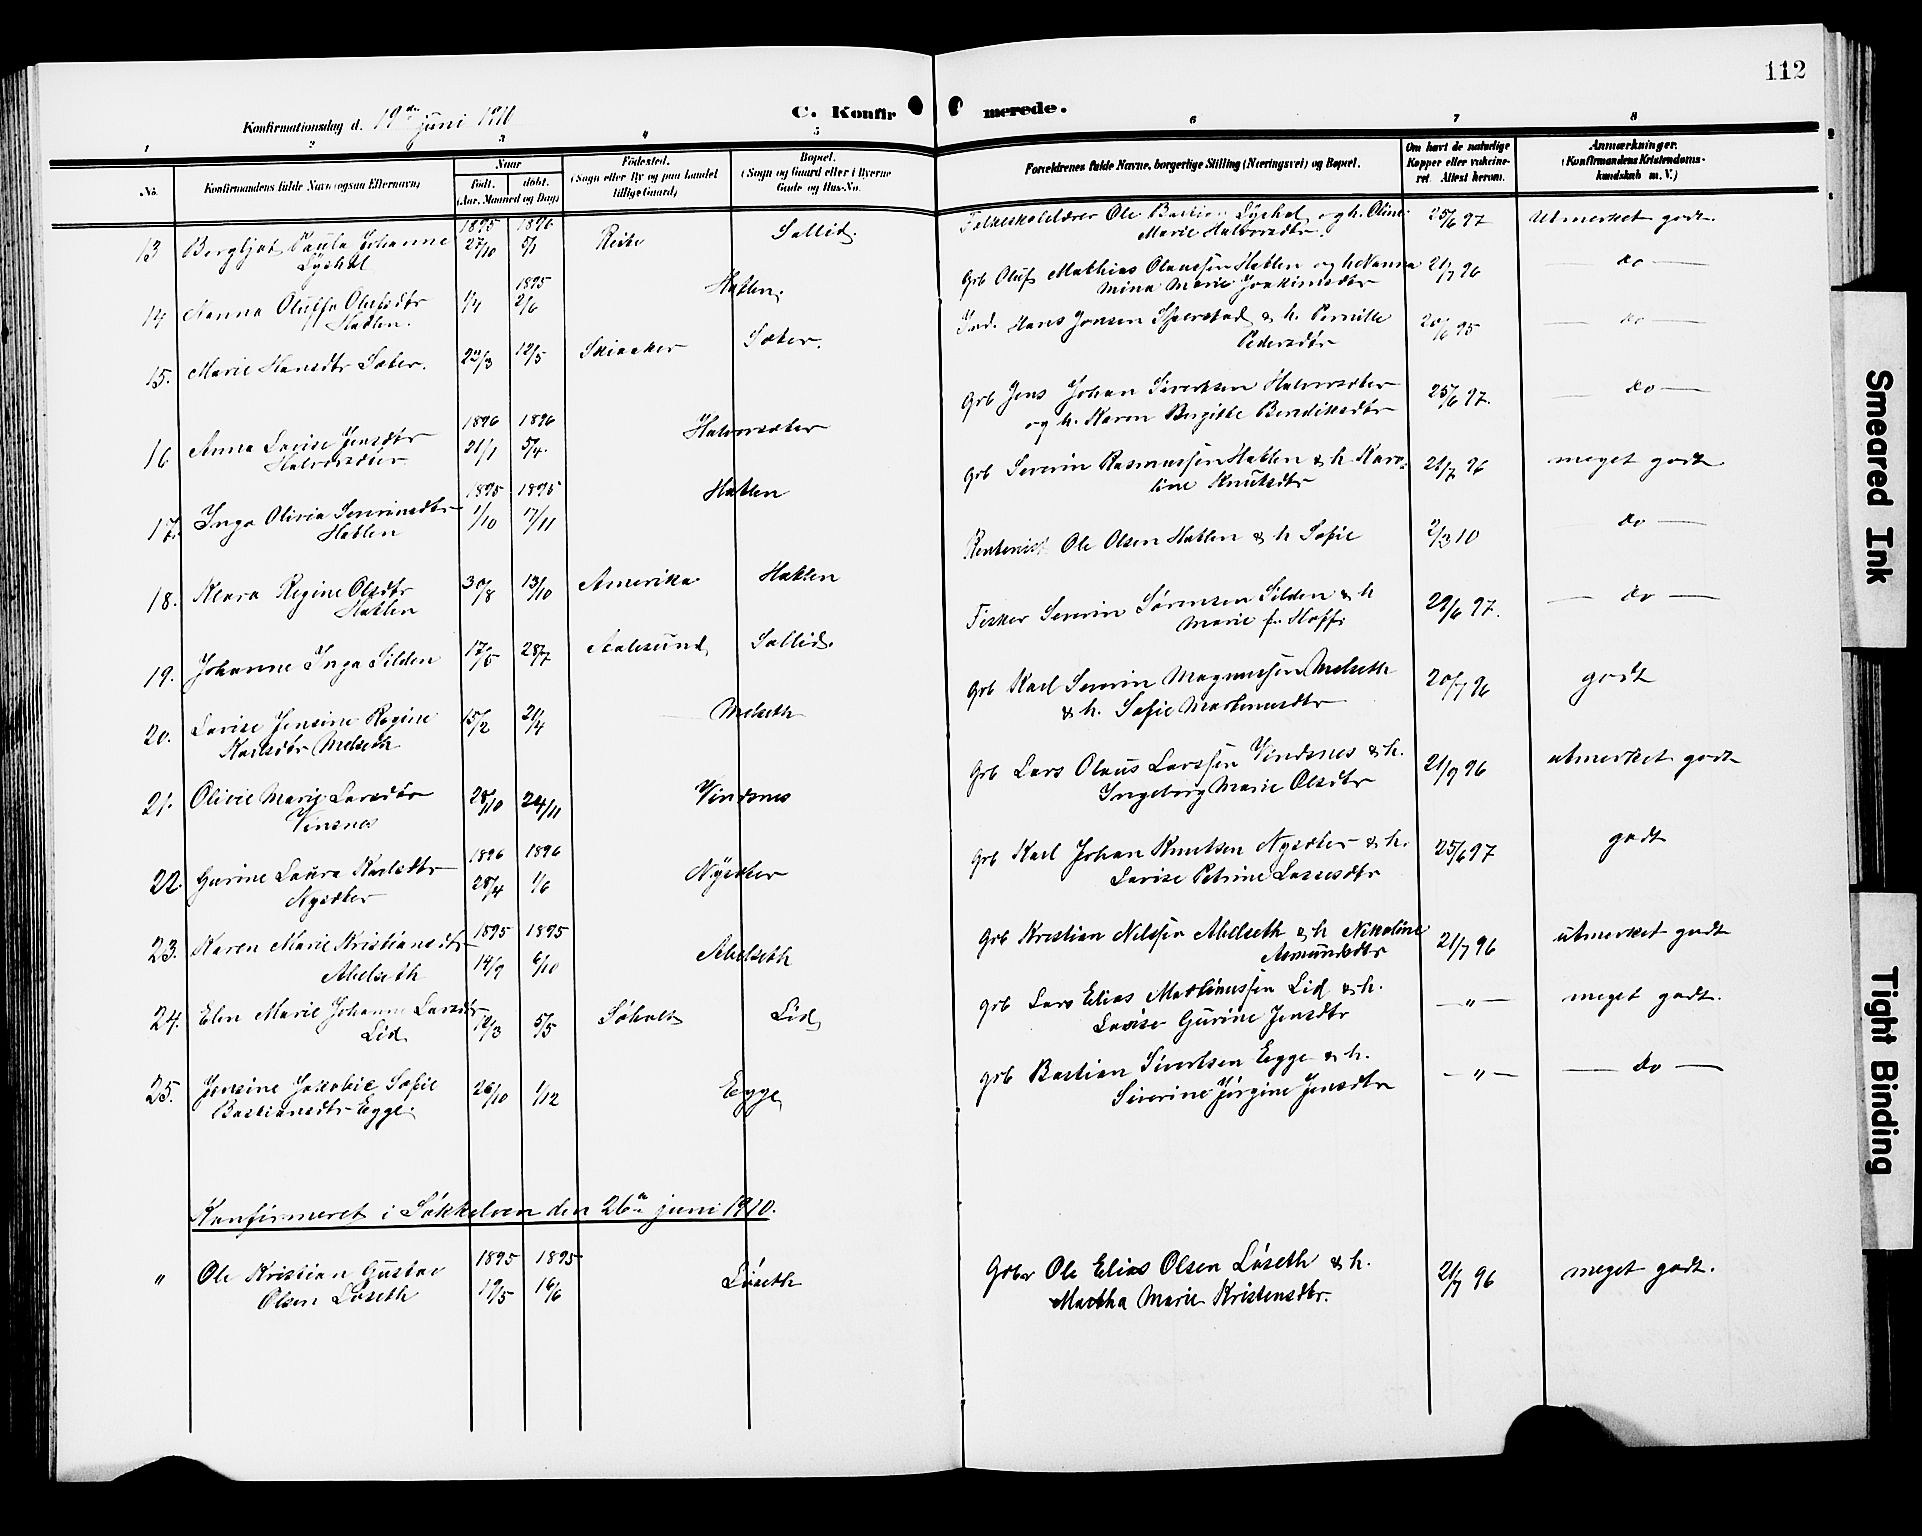 112
Konfirmationsdag d. 19de juni 1910
C. Konfirmerede.
1 2 3 4 5 6 7 8
No.
Konfirmandens fulde Navn (ogsaa Efternavn)
Naar
født. døbt.
(Aar, Maaned og Dag)
Fødested.
(Sogn eller By og paa Landet
tillige Gaard)
Bopæl.
(Sogn og Gaard eller i Byerne
Gade og Hus-No.
Forældrenes fulde Navne, borgerlige Stilling (Næringsvei) og Bopæl.
Om havt de naturlige
Kopper eller vakcine-
ret Attest herom.
Anmærkninger.
(Konfirmandens Kristendoms-
kundskab m. V.)
13 Bergljot Paula Johanne 1895 27/10 1896 5/1 Reite Sallid. Folkeskolelærer Ole Bastian Lyshol og h. Oline 25/6 97 Utmerket godt.
Lyshol Marie Halvorsdtr.
14 Nanna Oluffa Olufsdtr 1/4 1895 2/6 Hatlen. Grb Oluf Mathias Olaussen Hatlen og h. Nanna 21/7 96 — do —
Hatlen. Mina Marie Joakimsdtr
15. Marie Hansdtr Sæter. 23/3 12/5 Skiaaker Sæter. Ind. Hans Jonsen & h. Pernille 20/6 95 — do —
Pedersdtr
16 Anna Lovise Jensdtr 1896 21/1 1896 5/4. Halvorsæter Grb Jens Johan Sivertsen Halvorsæter 25/6 97. — do —
Halvorsæter og h. Karen Bergitte Bendiksdtr
17. Inga Olivia Severinsdtr 1895 1/10 1895 17/11 Hatlen Grb Severin Rasmussen Hatlen & h Karo- 21/7 96 meget godt
Hatlen line Knutsdtr
18. Klara Regine Olsdtr 30/8 13/10 Amerika Hatlen Rentenist Ole Olsen Hatlen & h Sofie 2/3 10 — do —
Hatlen
19. Johanne Inga Silden 17/5 28/7 Aalesund Sallid. Fisker Severin Sørensen Silden & h 29/6 97. — do —
Marie f. Hoff
20. Lovise Jensine Regine 15/2 21/4 Melseth Grb Karl Severin Magnussen Melseth 20/7 96 godt
Karlsdtr Melseth & h. Sofie Martinusdtr
21. Olivie Marie Larsdtr 28/10 24/11 Vindsnes Grb Lars Olaus Larssen Vindsnes & h. 21/9 96 utmerket godt
Vinsnes Ingeborg Marie Olsdtr
22. Gurine Laura Karlsdtr 1896 28/4 1896 1/6 Nysæter Grb Karl Johan Knutsen Nysæter & h. 25/6 97 godt
Nysæter Lovise Petrine Lassesdtr
23. Karen Marie Kristiansdtr 1895 14/9 1895 6/10 Abelseth Grb Kristian Nilssen Abelseth & h Nikoline 21/7 96 utmerket godt
Abelseth Asmundsdtr
24. Elen Marie Johanne Larsdtr 12/3 5/5 Søholt Lid Grb Lars Elias Martinussen Lid & h. — " — meget godt.
Lid Lovise Gurine Jensdtr
25. Jensine Jakobie Sofie 26/10 1/12 Egge Grb Bastian Sivertsen Egge & h. — " — — do —
Bastiansdtr Egge. Siverine Jørgine Jensdtr
Konfirmeret i Søkkelven den 26de juni 1910.
" Ole Kristian Gustav 1895 19/5 1895 16/6 Løseth Grbr Ole Elias Olsen Løseth & h. 21/7 96 meget godt.
Olsen Løseth Martha Marie Kristensdtr.
Smeared Ink
Tight Binding